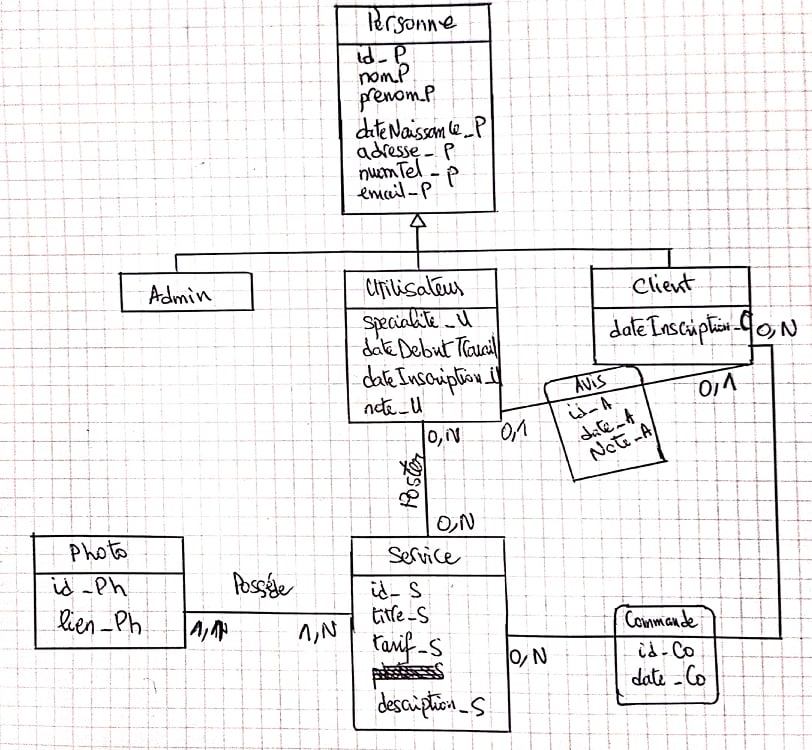 Personne
id_P
nom_P
prenom_P
dateNaissance_P
adresse_P
numTel_P
email_P
Admin
Utilisateur
specialite_U
dateDebutTravail
dateInscription_U
note_U
Client
dateInscription_C
0,N
0,1
AVIS
id_A
date_A
Note_A
0,1
0,N
POSTER
0,N
Photo
id_Ph
lien_Ph
Posséde
1,N
Service
id_S
titre_S
tarif_S
description_S
0,N
Commande
id_Co
date_Co